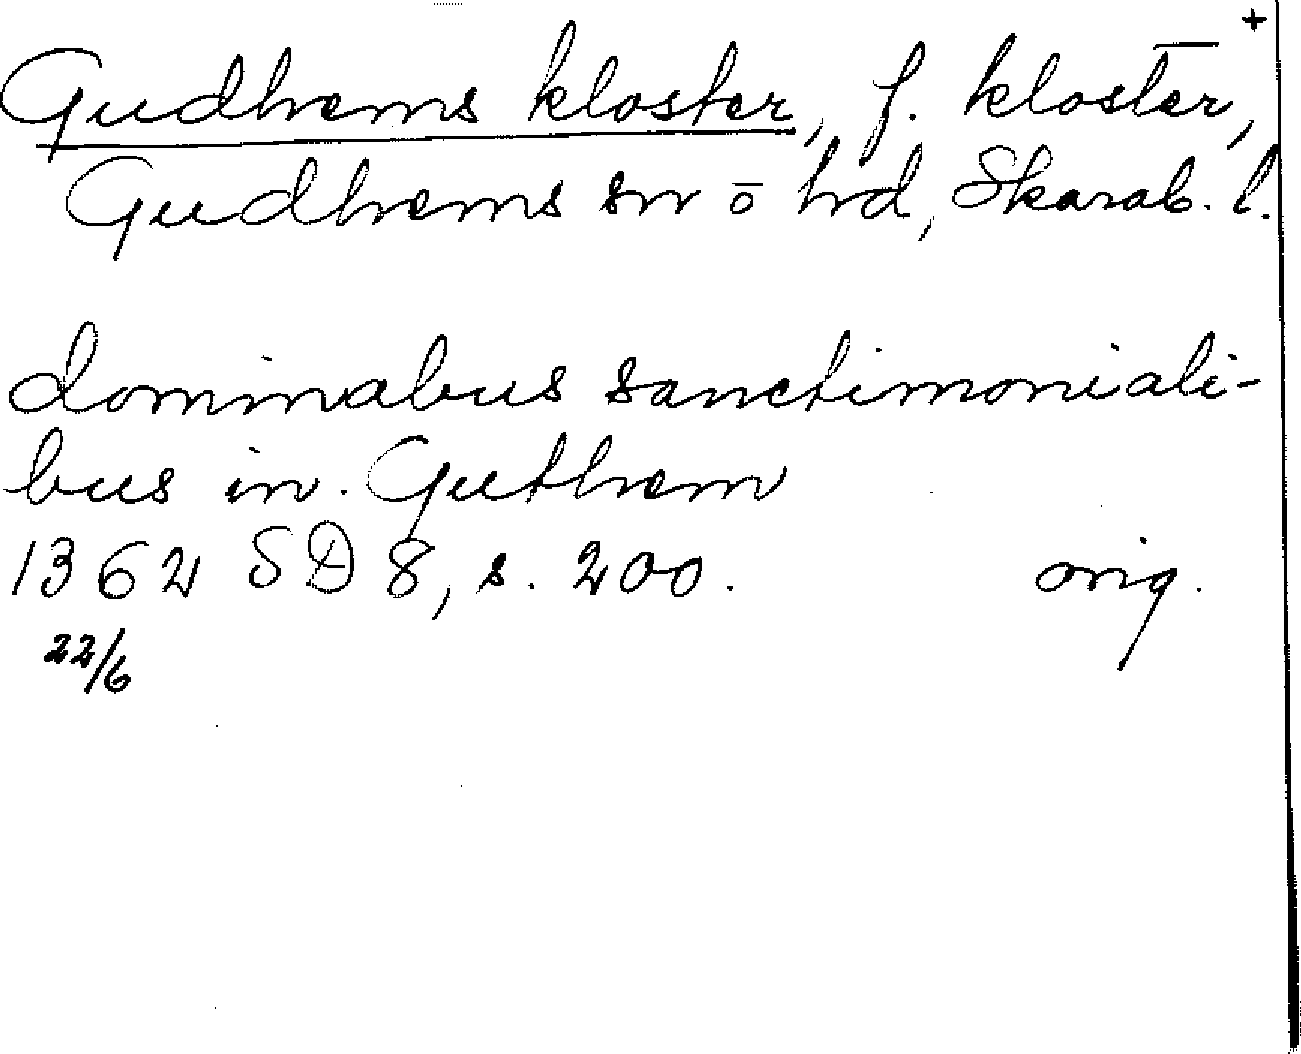 +
Gudhems kloster, f. kloster,
Gudhems sn ō hd, Skarab. l.
dominabus sanctimoniali-
bus in. Guthem
1362 SD 8, s. 200. orig.
22/6